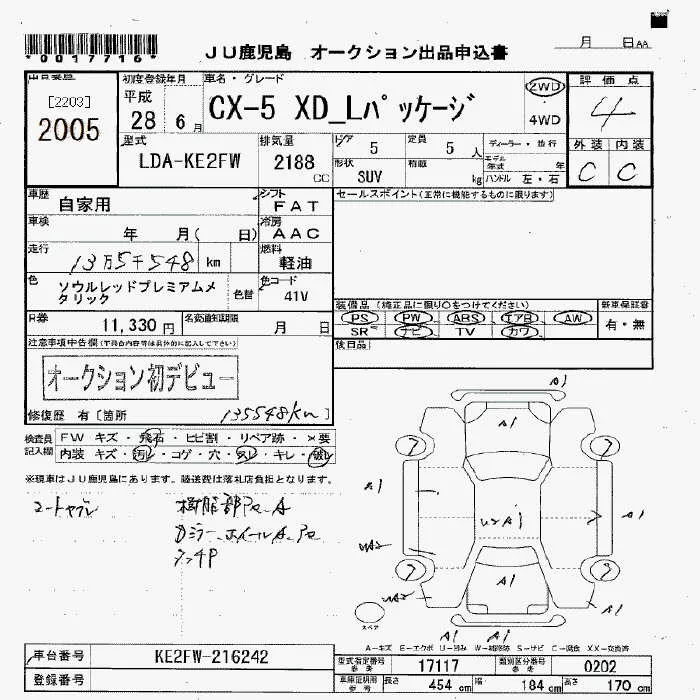 *0017716*
JU鹿児島 オークション出品申込書
月 日AA
[2203]
2005
初度登録年月
平成
28 6月
車名・グレード
CX-5 XD_Lパッケージ
2WD
4WD
評価点
4
外装 内装
C C
型式
LDA-KE2FW
排気量
2188 CC
ドア 5
定員 5 人
形状 SUV
積載 kg
ディーラー・並行
モデル年式 年
ハンドル 左・右
車歴 自家用
シフト FAT
セールスポイント(正常に機能するものに限ります)
車検 年 月( 日)
冷房 AAC
走行 13万5千548 km
燃料 軽油
色 ソウルレッドプレミアムメタリック
色替
色コード 41V
装備品 (純正品に限り○をつけてください)
PS PW ABS エアB AW
SR ナビ TV カワ
新車保証書
有・無
R券 11,330 円
名変通知期限 月 日
後日品
注意事項申告欄(不具合内容等は具体的に記入して下さい)
オークション初デビュー
修復歴 有 [箇所 135548km
検査員記入欄
FW キズ・飛石・ヒビ割・リペア跡・×要
内装 キズ・汚レ・コゲ・穴・スレ・キレ・破レ
※現車はJU鹿児島にあります。陸送費は落札店負担となります。
樹脂部 A
ミラー ホイールA
A1
A1
A1
A1
U2 A1
A1
A1
A1
A1
スペア
A-キズ E-エクボ U-凹み W-補修跡 S-サビ C-腐食 XX-交換済
車台番号 KE2FW-216242
型式指定番号 参考 17117
類別区分番号 参考 0202
登録番号
車庫証明用 参考 長さ 454 cm 幅 184 cm 高さ 170 cm